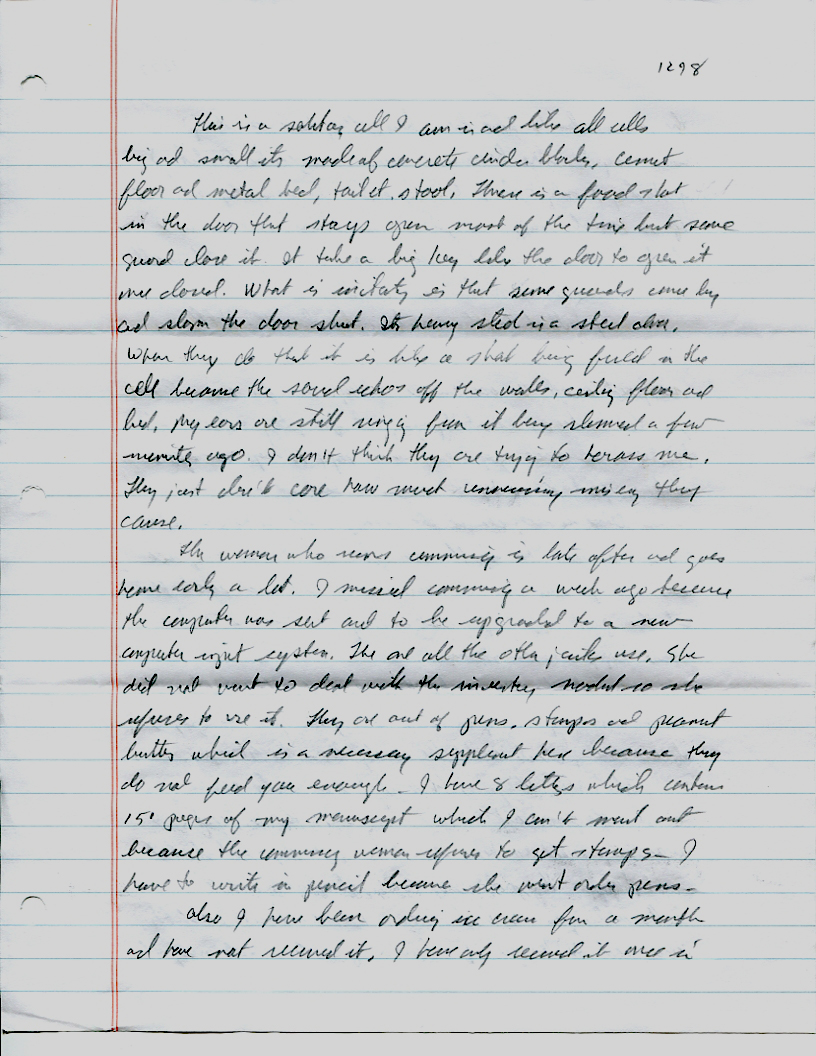 1298
This is a solitary cell I am in ad like all cells
big ad small its made of concrete cinder blocks, cement
floor ad metal bed, toilet, stool. There is a food slot
in the door that stays open most of the time but some
guard close it. It take a big key like the door to open it
once closed. What is irritating is that some guards come by
ad slam the door shut. Its heavy steel in a steel door.
When they do that it is like a shot being fired in the
cell because the sound echos off the walls, ceiling floor ad
bed. My ears are still ringing from it being slammed a few
minutes ago. I don't think they are trying to harass me.
They just don't care how much unnecessary misery they
cause.
The woman who runs commissary is late often ad goes
home early a lot. I missed commissary a week ago because
the computer was sent out to be upgraded to a new
computer system. The one all the other jails use. She
did not want to deal with the inventory needed so she
refuses to use it. They are out of pens, stamps ad peanut
butter which is a necessary supplement here because they
do not feed you enough. I have 8 letters which contain
150 pages of my manuscript which I can't send out
because the commissary woman refuses to get stamps. I
have to write in pencil because she wont order pens.
Also I have been ordering ice cream for a month
ad have not received it. I have only received it once in